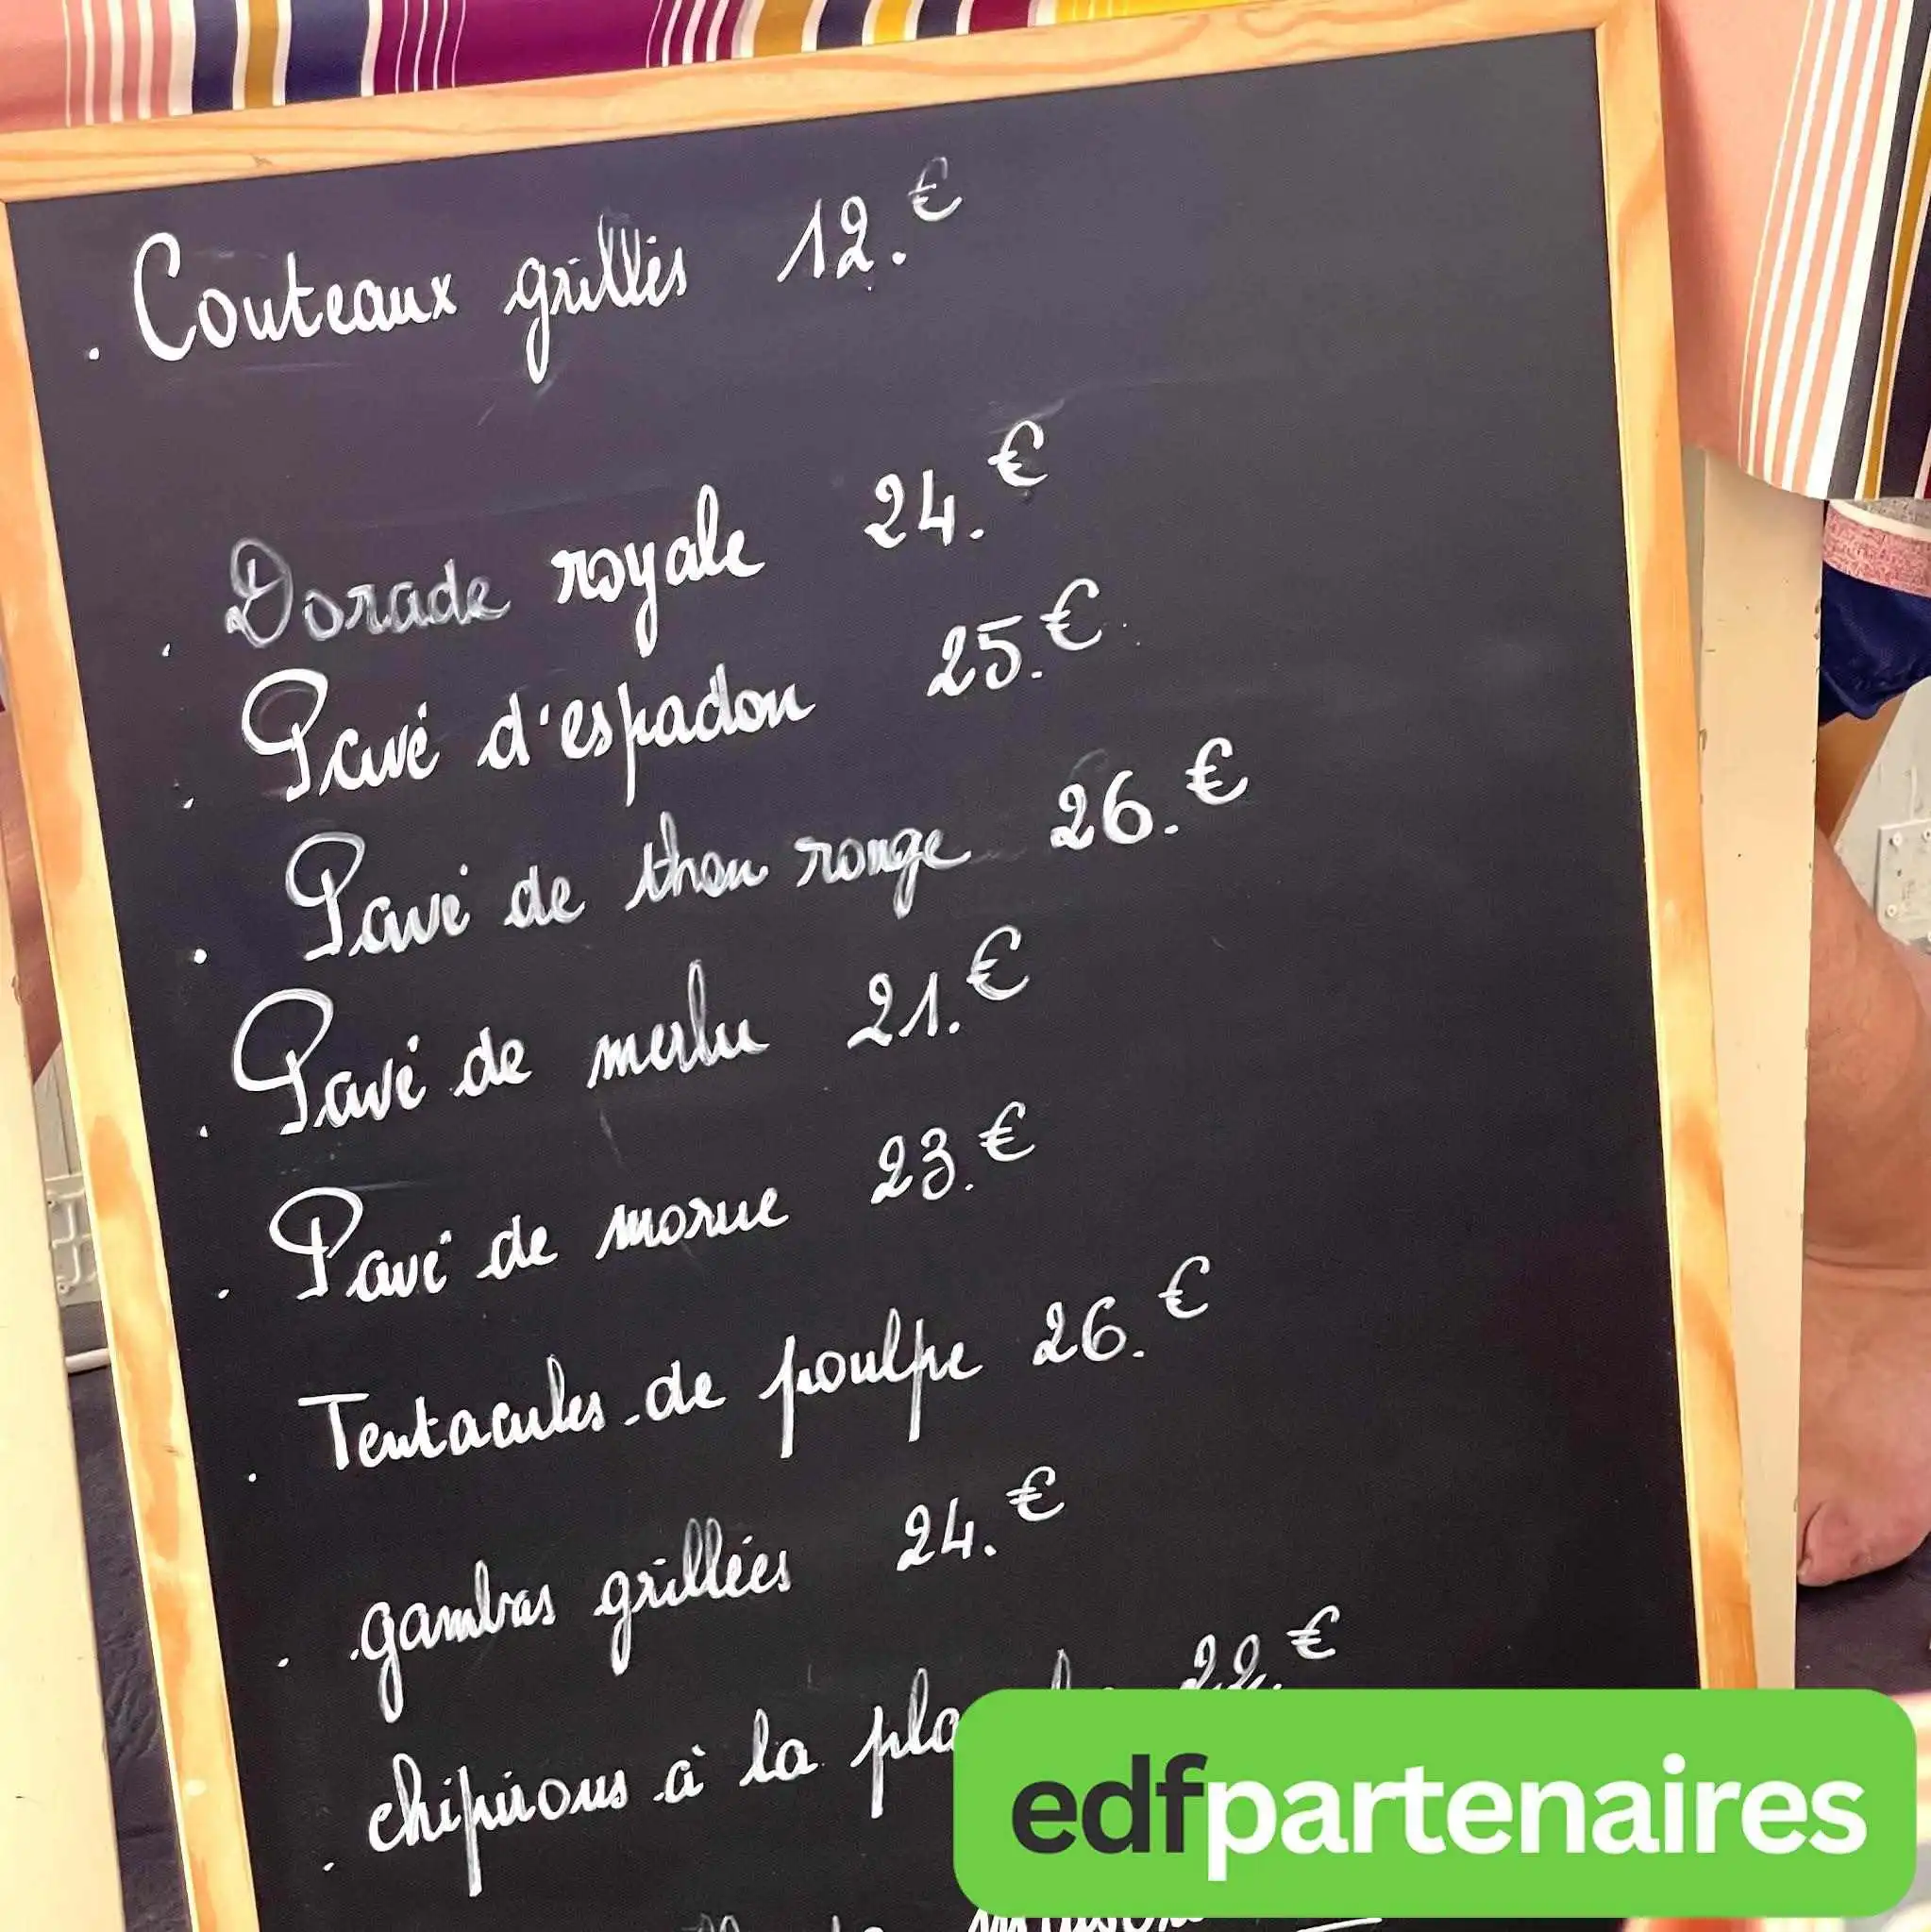 . Couteaux grillés 12.€
. Dorade royale 24.€
. Pavé d'espadon 25.€
. Pavé de thon rouge 26.€
. Pavé de merlu 21.€
. Pavé de morue 23.€
. Tentacules de poulpe 26.€
. gambas grillées 24.€
. chipirons à la 22.€
edfpartenaires